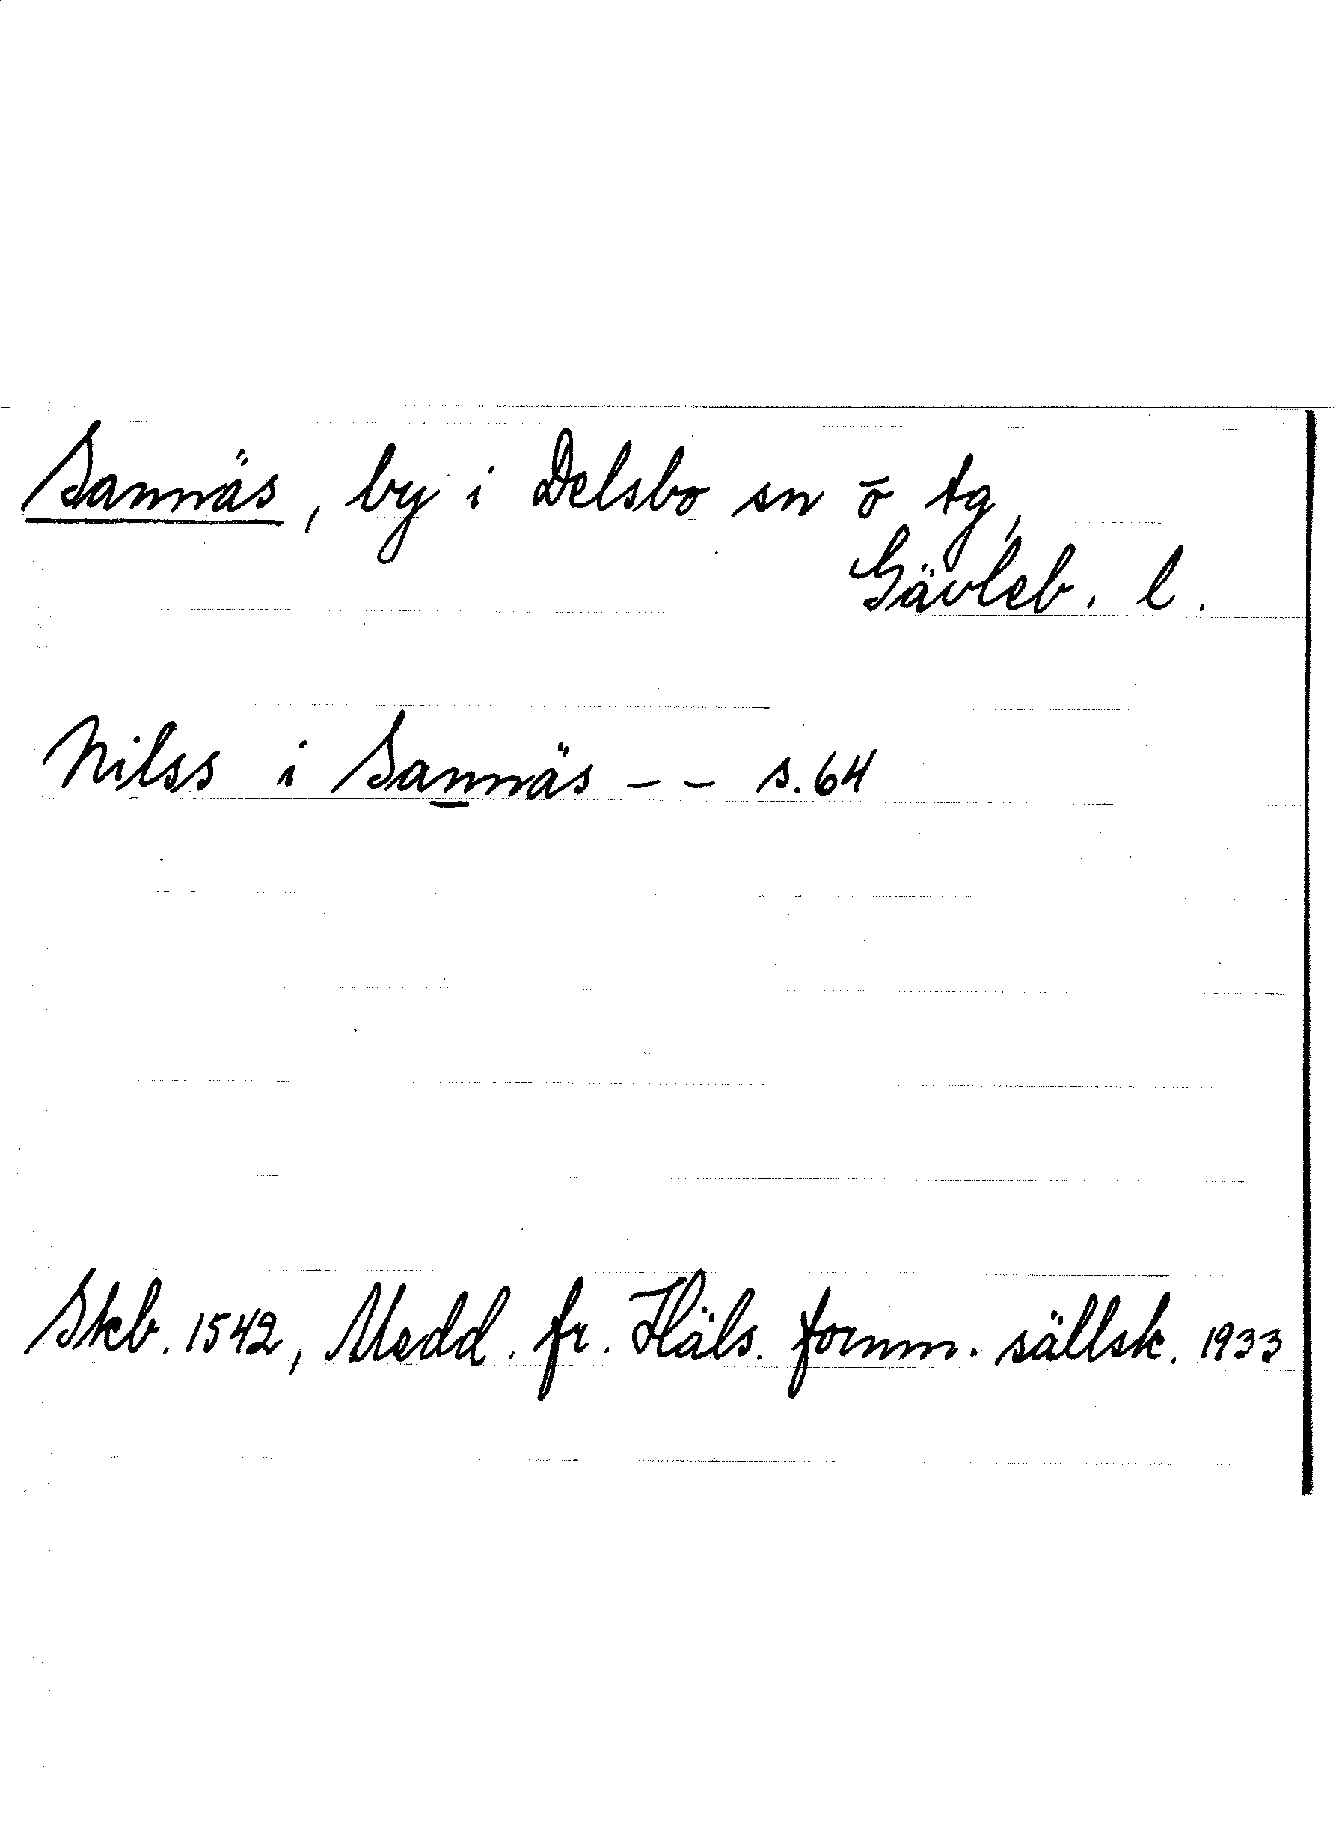 Sannäs, by i Delsbo sn o tg,
Gävleb. l.
Nilss i Sannäs - - s. 64
Skb. 1542, Medd. fr. Häls. fornm. sällsk. 1933